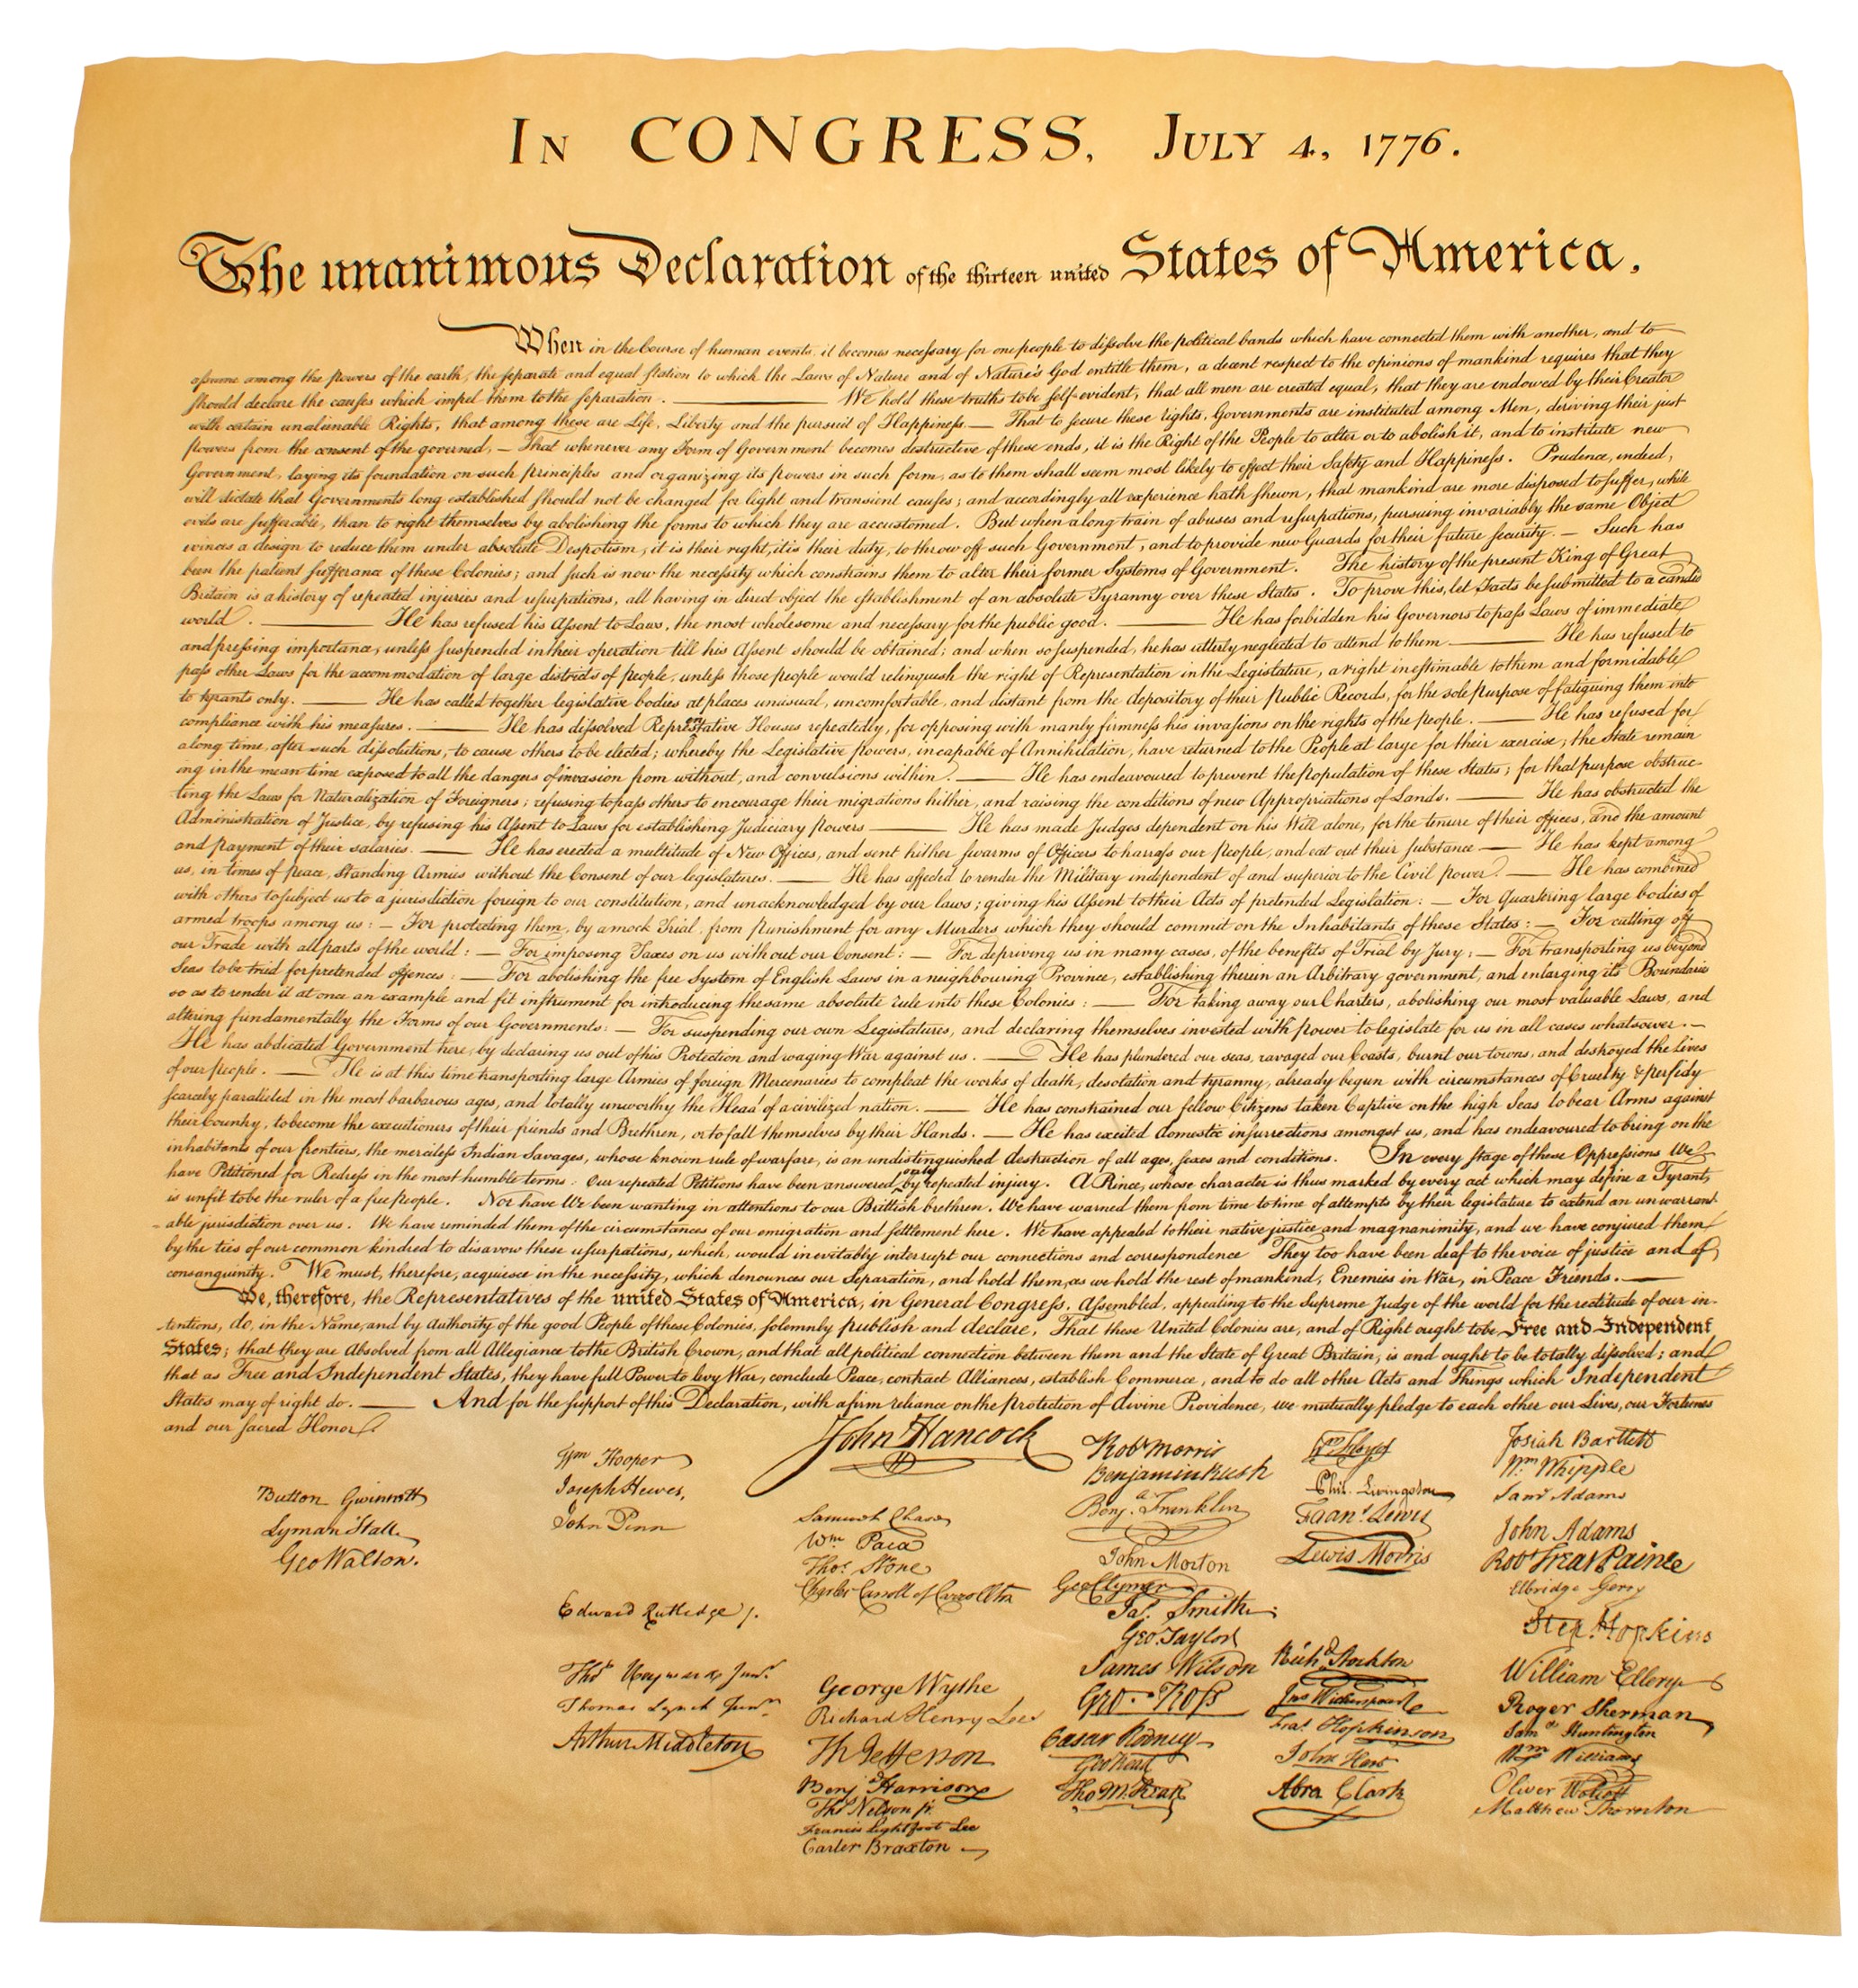 In CONGRESS, July 4, 1776.
The unanimous Declaration of the thirteen united States of America,
When in the Course of human events, it becomes necessary for one people to dissolve the political bands which have connected them with another, and to
assume among the powers of the earth, the separate and equal station to which the Laws of Nature and of Nature's God entitle them, a decent respect to the opinions of mankind requires that they
should declare the causes which impel them to the separation. — We hold these truths to be self-evident, that all men are created equal, that they are endowed by their Creator
with certain unalienable Rights, that among these are Life, Liberty and the pursuit of Happiness — That to secure these rights, Governments are instituted among Men, deriving their just
powers from the consent of the governed, — That whenever any Form of Government becomes destructive of these ends, it is the Right of the People to alter or to abolish it, and to institute new
Government, laying its foundation on such principles and organizing its powers in such form, as to them shall seem most likely to effect their Safety and Happiness. Prudence, indeed,
will dictate that Governments long established should not be changed for light and transient causes; and accordingly all experience hath shewn, that mankind are more disposed to suffer, while
evils are sufferable, than to right themselves by abolishing the forms to which they are accustomed. But when a long train of abuses and usurpations, pursuing invariably the same Object
evinces a design to reduce them under absolute Despotism, it is their right, it is their duty, to throw off such Government, and to provide new Guards for their future security. — Such has
been the patient sufferance of these Colonies; and such is now the necessity which constrains them to alter their former Systems of Government. The history of the present King of Great
Britain is a history of repeated injuries and usurpations, all having in direct object the establishment of an absolute Tyranny over these States. To prove this, let Facts be submitted to a candid
world. — He has refused his Assent to Laws, the most wholesome and necessary for the public good. — He has forbidden his Governors to pass Laws of immediate
and pressing importance, unless suspended in their operation till his Assent should be obtained; and when so suspended, he has utterly neglected to attend to them — He has refused to
pass other Laws for the accommodation of large districts of people, unless those people would relinquish the right of Representation in the Legislature, a right inestimable to them and formidable
to tyrants only. — He has called together legislative bodies at places unusual, uncomfortable, and distant from the depository of their Public Records, for the sole purpose of fatiguing them into
compliance with his measures. — He has dissolved Representative Houses repeatedly, for opposing with manly firmness his invasions on the rights of the people. — He has refused for
a long time, after such dissolutions, to cause others to be elected; whereby the Legislative powers, incapable of Annihilation, have returned to the People at large for their exercise; the State remain
ing in the mean time exposed to all the dangers of invasion from without, and convulsions within. — He has endeavoured to prevent the population of these States; for that purpose obstruc-
ting the Laws for Naturalization of Foreigners; refusing to pass others to encourage their migrations hither, and raising the conditions of new Appropriations of Lands. — He has obstructed the
Administration of Justice, by refusing his Assent to Laws for establishing Judiciary powers — He has made Judges dependent on his Will alone, for the tenure of their offices, and the amount
and payment of their salaries. — He has erected a multitude of New Offices, and sent hither swarms of Officers to harrass our people, and eat out their substance — He has kept among
us, in times of peace, Standing Armies without the Consent of our legislatures. — He has affected to render the Military independent of and superior to the Civil power. — He has combined
with others to subject us to a jurisdiction foreign to our constitution, and unacknowledged by our laws; giving his Assent to their Acts of pretended Legislation: — For Quartering large bodies of
armed troops among us: — For protecting them, by a mock Trial, from punishment for any Murders which they should commit on the Inhabitants of these States: — For cutting off
our Trade with all parts of the world: — For imposing Taxes on us without our Consent: — For depriving us in many cases, of the benefits of Trial by Jury: — For transporting us beyond
Seas to be tried for pretended offences: — For abolishing the free System of English Laws in a neighbouring Province, establishing therein an Arbitrary government, and enlarging its Boundaries
so as to render it at once an example and fit instrument for introducing the same absolute rule into these Colonies: — For taking away our Charters, abolishing our most valuable Laws, and
altering fundamentally the Forms of our Governments: — For suspending our own Legislatures, and declaring themselves invested with power to legislate for us in all cases whatsoever. —
He has abdicated Government here, by declaring us out of his Protection and waging War against us. — He has plundered our seas, ravaged our Coasts, burnt our towns, and destroyed the Lives
of our people. — He is at this time transporting large Armies of foreign Mercenaries to compleat the works of death, desolation and tyranny, already begun with circumstances of Cruelty & perfidy
scarcely paralleled in the most barbarous ages, and totally unworthy the Head of a civilized nation. — He has constrained our fellow Citizens taken Captive on the high Seas to bear Arms against
their Country, to become the executioners of their friends and Brethren, or to fall themselves by their Hands. — He has excited domestic insurrections amongst us, and has endeavoured to bring on the
inhabitants of our frontiers, the merciless Indian Savages, whose known rule of warfare, is an undistinguished destruction of all ages, sexes and conditions. In every stage of these Oppressions We
have Petitioned for Redress in the most humble terms: Our repeated Petitions have been answered only by repeated injury. A Prince, whose character is thus marked by every act which may define a Tyrant,
is unfit to be the ruler of a free people. Nor have We been wanting in attentions to our Brittish brethren. We have warned them from time to time of attempts by their legislature to extend an unwarrant-
able jurisdiction over us. We have reminded them of the circumstances of our emigration and settlement here. We have appealed to their native justice and magnanimity, and we have conjured them
by the ties of our common kindred to disavow these usurpations, which, would inevitably interrupt our connections and correspondence They too have been deaf to the voice of justice and of
consanguinity. We must, therefore, acquiesce in the necessity, which denounces our Separation, and hold them, as we hold the rest of mankind, Enemies in War, in Peace Friends. —
We, therefore, the Representatives of the united States of America, in General Congress, Assembled, appealing to the Supreme Judge of the world for the rectitude of our in-
tentions, do, in the Name, and by Authority of the good People of these Colonies, solemnly publish and declare, That these United Colonies are, and of Right ought to be Free and Independent
States; that they are Absolved from all Allegiance to the British Crown, and that all political connection between them and the State of Great Britain, is and ought to be totally dissolved; and
that as Free and Independent States, they have full Power to levy War, conclude Peace, contract Alliances, establish Commerce, and to do all other Acts and Things which Independent
States may of right do. — And for the support of this Declaration, with a firm reliance on the protection of divine Providence, we mutually pledge to each other our Lives, our Fortunes
and our sacred Honor.
Button Gwinnett
Lyman Hall
Geo Walton.
Wm Hooper
Joseph Hewes,
John Penn
Edward Rutledge /.
Thos Heyward Junr.
Thomas Lynch Junr.
Arthur Middleton
John Hancock
Samuel Chase
Wm Paca
Thos Stone
Charles Carroll of Carrollton
George Wythe
Richard Henry Lee
Th Jefferson
Benj Harrison
Thos Nelson jr.
Francis Lightfoot Lee
Carter Braxton
Robt Morris
Benjamin Rush
Benj. Franklin
John Morton
Geo Clymer
Jas. Smith
Geo. Taylor
James Wilson
Geo. Ross
Caesar Rodney
Geo Read
Tho M:Kean
Wm Floyd
Phil. Livingston
Frans. Lewis
Lewis Morris
Richd. Stockton
Jno Witherspoon
Fras. Hopkinson
John Hart
Abra Clark
Josiah Bartlett
Wm Whipple
Saml Adams
John Adams
Robt Treat Paine
Elbridge Gerry
Step. Hopkins
William Ellery
Roger Sherman
Sam el Huntington
Wm Williams
Oliver Wolcott
Matthew Thornton